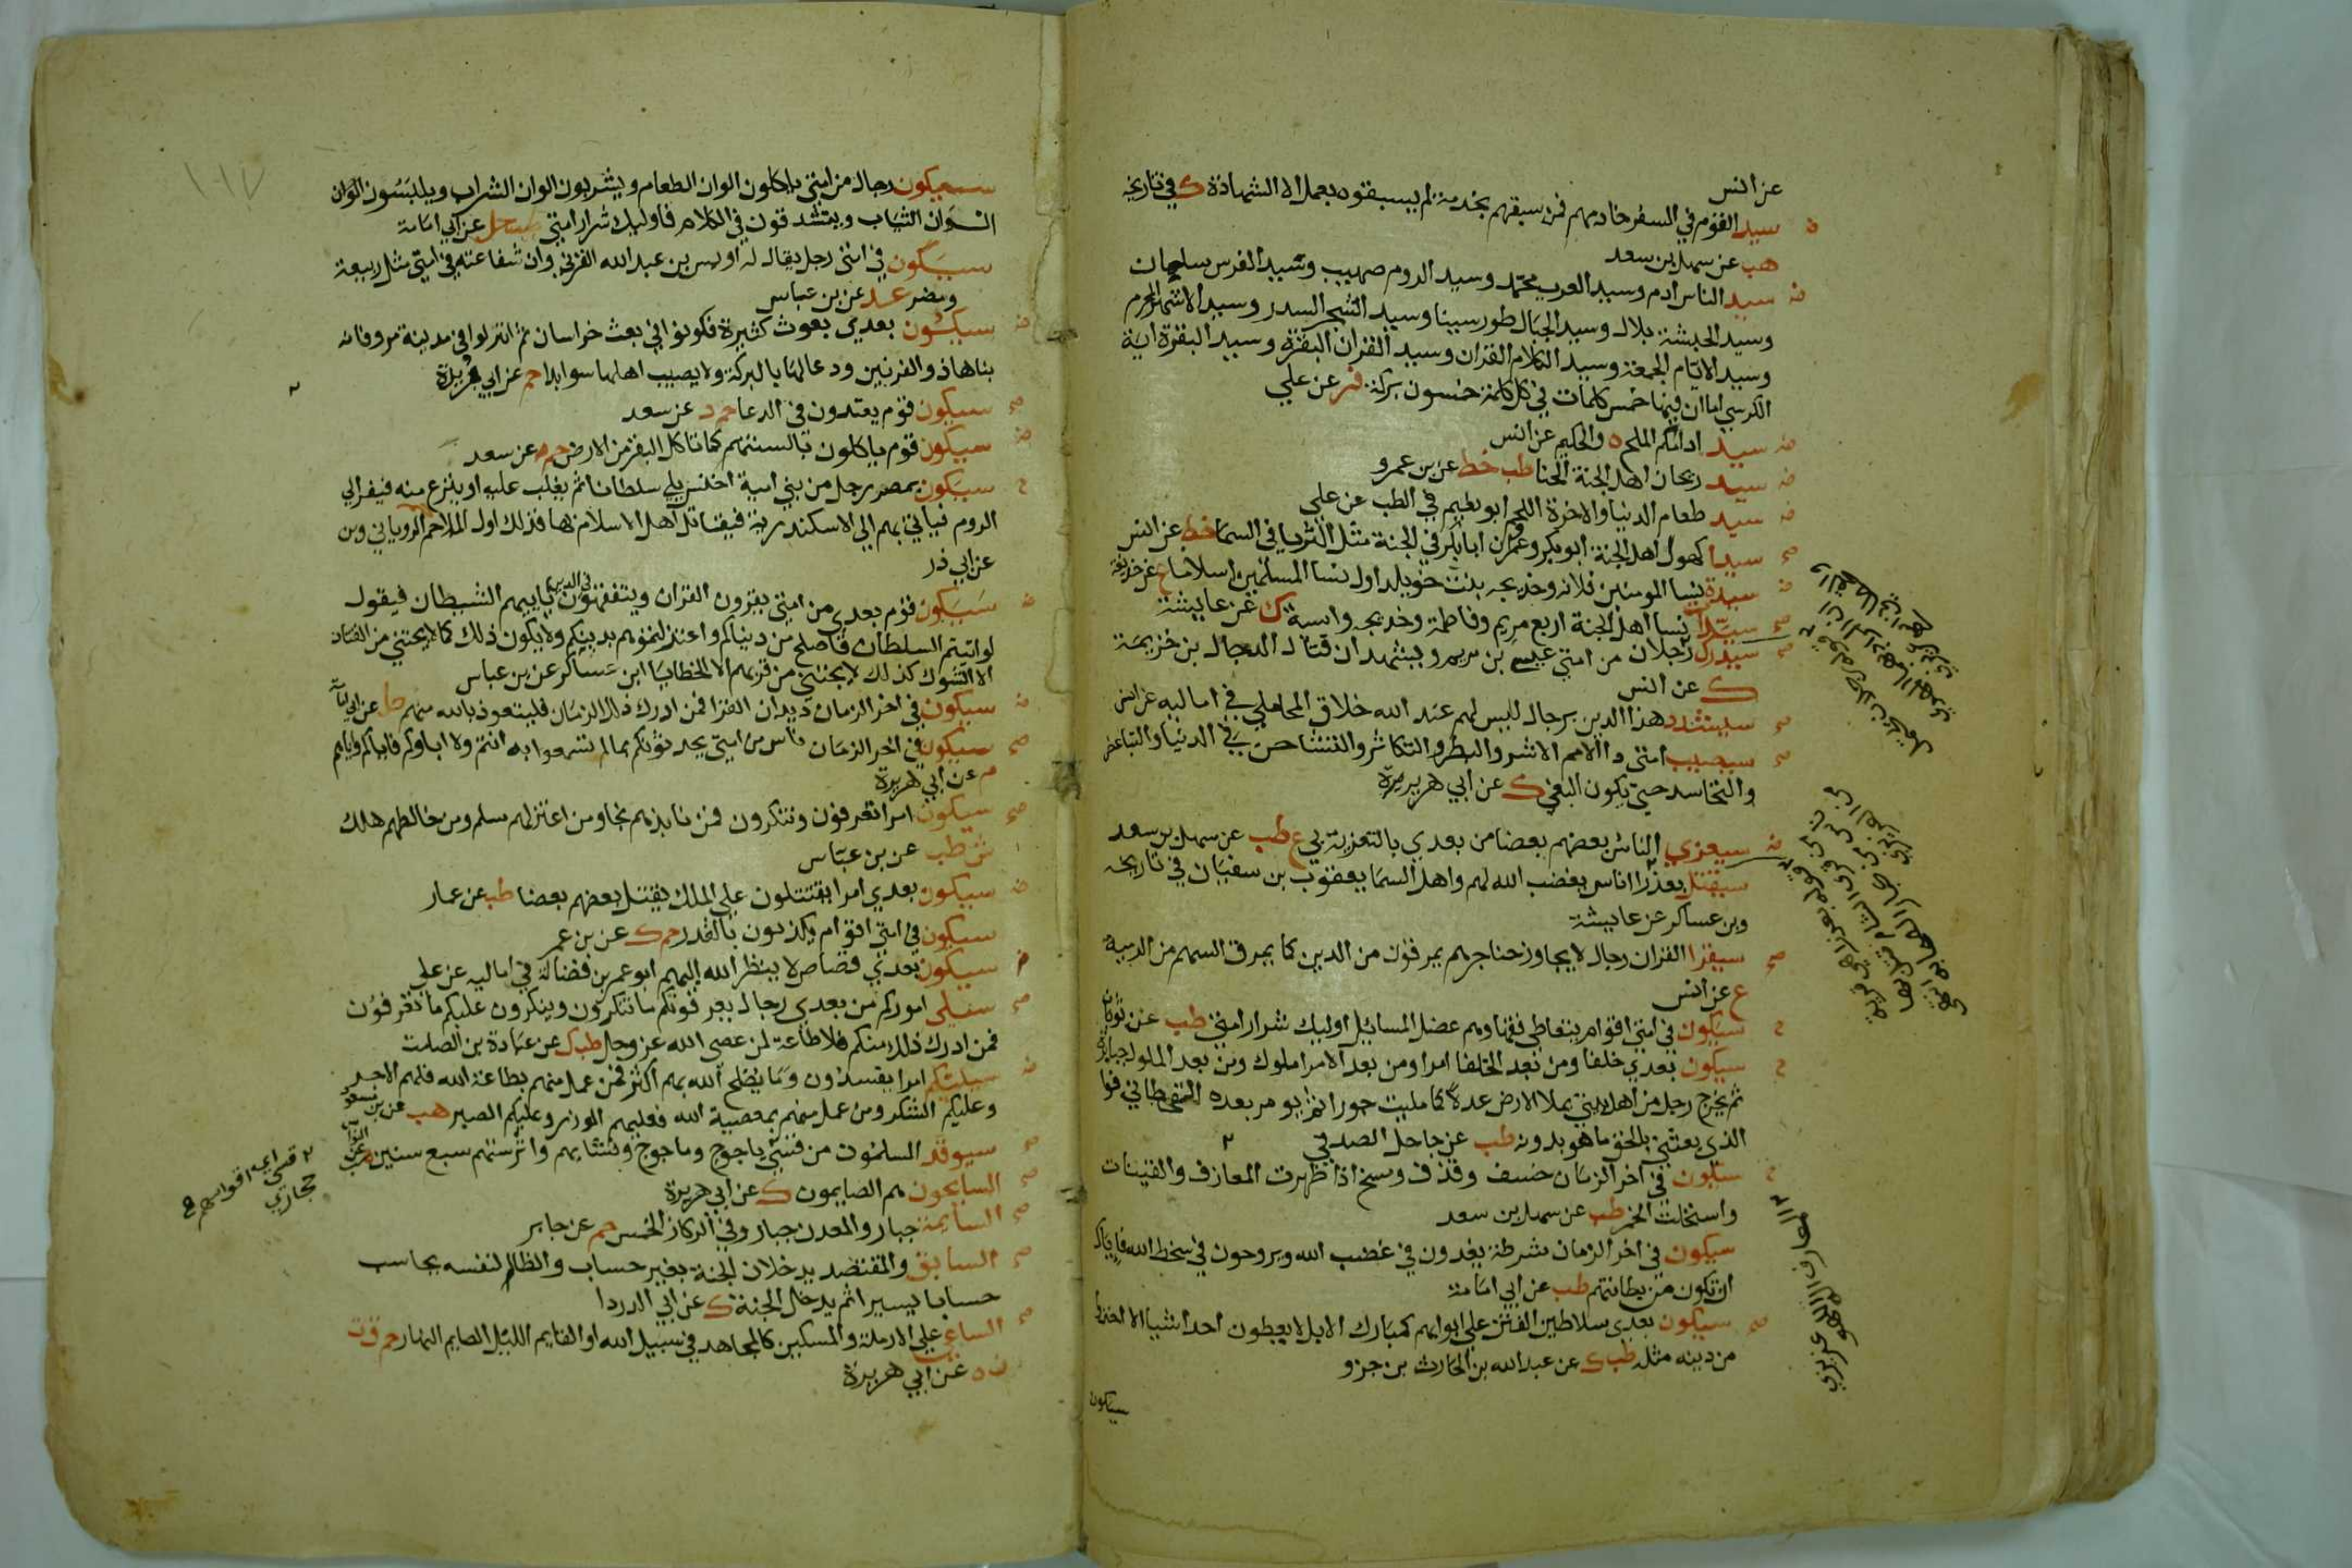 عن انس
سيد القوم في السفر خادمهم فمن سبقهم بخدمة لم يسبقوه بعمل الا الشهادة ك في تاريخه
هب عن سهل بن سعد
سيد الناس ادم وسيد العرب محمد وسيد الروم صهيب وسيد الفرس سلمان
وسيد الحبشة بلال وسيد الجبال طور سينا وسيد الشجر السدر وسيد الاشهر المحرم
وسيد الايام الجمعة وسيد الكلام القران وسيد القران البقرة وسيد البقرة اية
الكرسي اما ان فيها خمس كلمات في كل كلمة خمسون بركة فر عن علي
سيد ادامكم الملح ه والحكيم عن انس
سيد ريحان اهل الجنة الحنا طب خط عن بن عمرو
سيد طعام الدنيا والاخرة اللحم ابو نعيم في الطب عن علي
سيدا كهول اهل الجنة ابو بكر وعمر وان ابا بكر في الجنة مثل الثريا في السما خط عن انس
سيدة نسا المومنين فلانه وخديجه بنت خويلد اول نسا المسلمين اسلاما ع عن حذيفة
سيدات نسا اهل الجنة اربع مريم وفاطمة وخديجه واسية ك عن عايشة
سيدرك رجلان من امتي عيسى بن مريم ويشهدان قتال الدجال بن خزيمة
ك عن انس
سيشدد هذا الدين برجال ليس لهم عند الله خلاق المحاملي في اماليه عن انس
سيصيب امتي دا الامم الاشر والبطر والتكاثر والتشاحن في الدنيا والتباغض
والتحاسد حتى يكون البغي ك عن ابي هريرة
سيعزي الناس بعضهم بعضا من بعدي بالتعزية بي ع طب عن سهل بن سعد
سيقتل بعذرا اناس يغضب الله لهم واهل السما يعقوب بن سفيان في تاريخه
وبن عساكر عن عايشة
سيقرا القران رجال لا يجاوز حناجرهم يمرقون من الدين كما يمرق السهم من الرمية
ع عن انس
سيكون في امتي اقوام يتعاطى فقهاوهم عضل المسايل اوليك شرار امتي طب عن ثوبان
سيكون بعدي خلفا ومن بعد الخلفا امرا ومن بعد الامرا ملوك ومن بعد الملوك جبابرة
ثم يخرج رجل من اهل بيتي يملا الارض عدلا كما مليت جورا ثم يومر بعده القحطاني فوا
الذي بعثني بالحق ما هو بدونه طب عن جاحل الصدفي
سيكون في آخر الزمان خسف وقذف ومسخ اذا ظهرت المعازف والقينات
واستحلت الخمر طب عن سهل بن سعد
سيكون في اخر الزمان شرطة يغدون في غضب الله ويروحون في سخط الله فاياك
ان تكون من بطانتهم طب عن ابي امامة
سيكون بعدي سلاطين الفتن على ابوابهم كمبارك الابل لا يعطون احدا شيا الا اخذوا
من دينه مثله طب ك عن عبد الله بن الحارث بن جزو
سيكون
المعازف الملاهي عزيزي
سيكون رجال من امتي ياكلون الوان الطعام ويشربون الوان الشراب ويلبسون الوان
الثياب ويتشدقون في الكلام فاوليك شرار امتي طب حل عن ابي امامة
سيكون في امتي رجل يقال له اويس بن عبد الله القرني وان شفاعته في امتي مثل ربيعة
ومضر عد عن بن عباس
سيكون بعدي بعوث كثيرة فكونوا في بعث خراسان ثم انزلوا في مدينة مرو فانه
بناها ذو القرنين ودعا لها بالبركة ولا يصيب اهلها سوا ابدا حم عن ابي بريدة
سيكون قوم يعتدون في الدعا حم د عن سعد
سيكون قوم ياكلون بالسنتهم كما تاكل البقر من الارض حم عن سعد
سيكون بمصر رجل من بني امية اخنس يلي سلطانا ثم يغلب عليه او ينزع منه فيفر الي
الروم فياتي بهم الي الاسكندرية فيقاتل اهل الاسلام بها فذلك اول الملاحم الروياني وبن
عن ابي ذر
سيكون قوم بعدي من امتي يقرون القران ويتفقهون في الدين ياتيهم الشيطان فيقول
لو اتيتم السلطان فاصلح من دنياكم واعتزلتموهم بدينكم ولا يكون ذلك كما لا يجتنى من القتاد
الا الشوك كذلك لا يجتنى من قربهم الا الخطايا ابن عساكر عن بن عباس
سيكون في اخر الزمان ديدان القرا فمن ادرك ذلك الزمان فليتعوذ بالله منهم حل عن ابي امامة
سيكون في اخر الزمان ناس من امتي يحدثونكم بما لم تسمعوا به انتم ولا اباوكم فاياكم واياهم
م عن ابي هريرة
سيكون امرا تعرفون وتنكرون فمن نابذهم نجا ومن اعتزلهم سلم ومن خالطهم هلك
ش طب عن بن عباس
سيكون بعدي امرا يقتتلون على الملك يقتل بعضهم بعضا طب عن عمار
سيكون في امتي اقوام يكذبون بالقدر حم ك عن بن عمر
سيكون بعدي قصاص لا ينظر الله اليهم ابو عمر بن فضالة في اماليه عن علي
سيلي اموركم من بعدي رجال يعرفونكم ما تنكرون وينكرون عليكم ما تعرفون
فمن ادرك ذلك منكم فلا طاعة لمن عصى الله عز وجل طب ك عن عبادة بن الصامت
سيليكم امرا يفسدون وما يصلح الله بهم اكثر فمن عمل منهم بطاعة الله فلهم الاجر
وعليكم الشكر ومن عمل منهم بمعصية الله فعليهم الوزر وعليكم الصبر هب عن بن مسعود
سيوقد المسلمون من قسي ياجوج وماجوج ونشابهم واترستهم سبع سنين ه عن النواس
السايحون هم الصايمون ك عن ابي هريرة
السايمة جبار والمعدن جبار وفي الركاز الخمس حم عن جابر
السابق والمقتصد يدخلان الجنة بغير حساب والظالم لنفسه يحاسب
حسابا يسيرا ثم يدخل الجنة ك عن ابي الدردا
الساعي علي الارملة والمسكين كالمجاهد في سبيل الله او القايم الليل الصايم النهار حم ق ت
ن ه عن ابي هريرة
قسي اي اقواسهم
حجازي